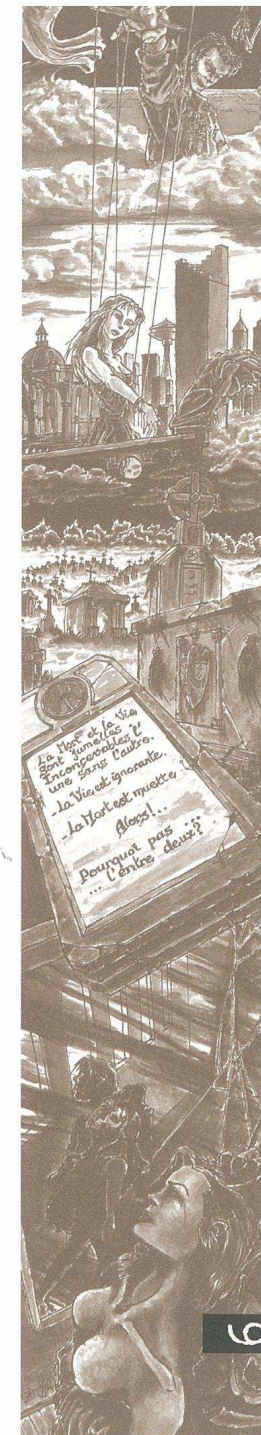 La Mort et la Vie
sont jumelles
Inconcevables l'
une sans l'autre.
La Vie est ignorante.
La Mort est muette.
Alors!...
Pourquoi pas ...
... l'entre deux?
6